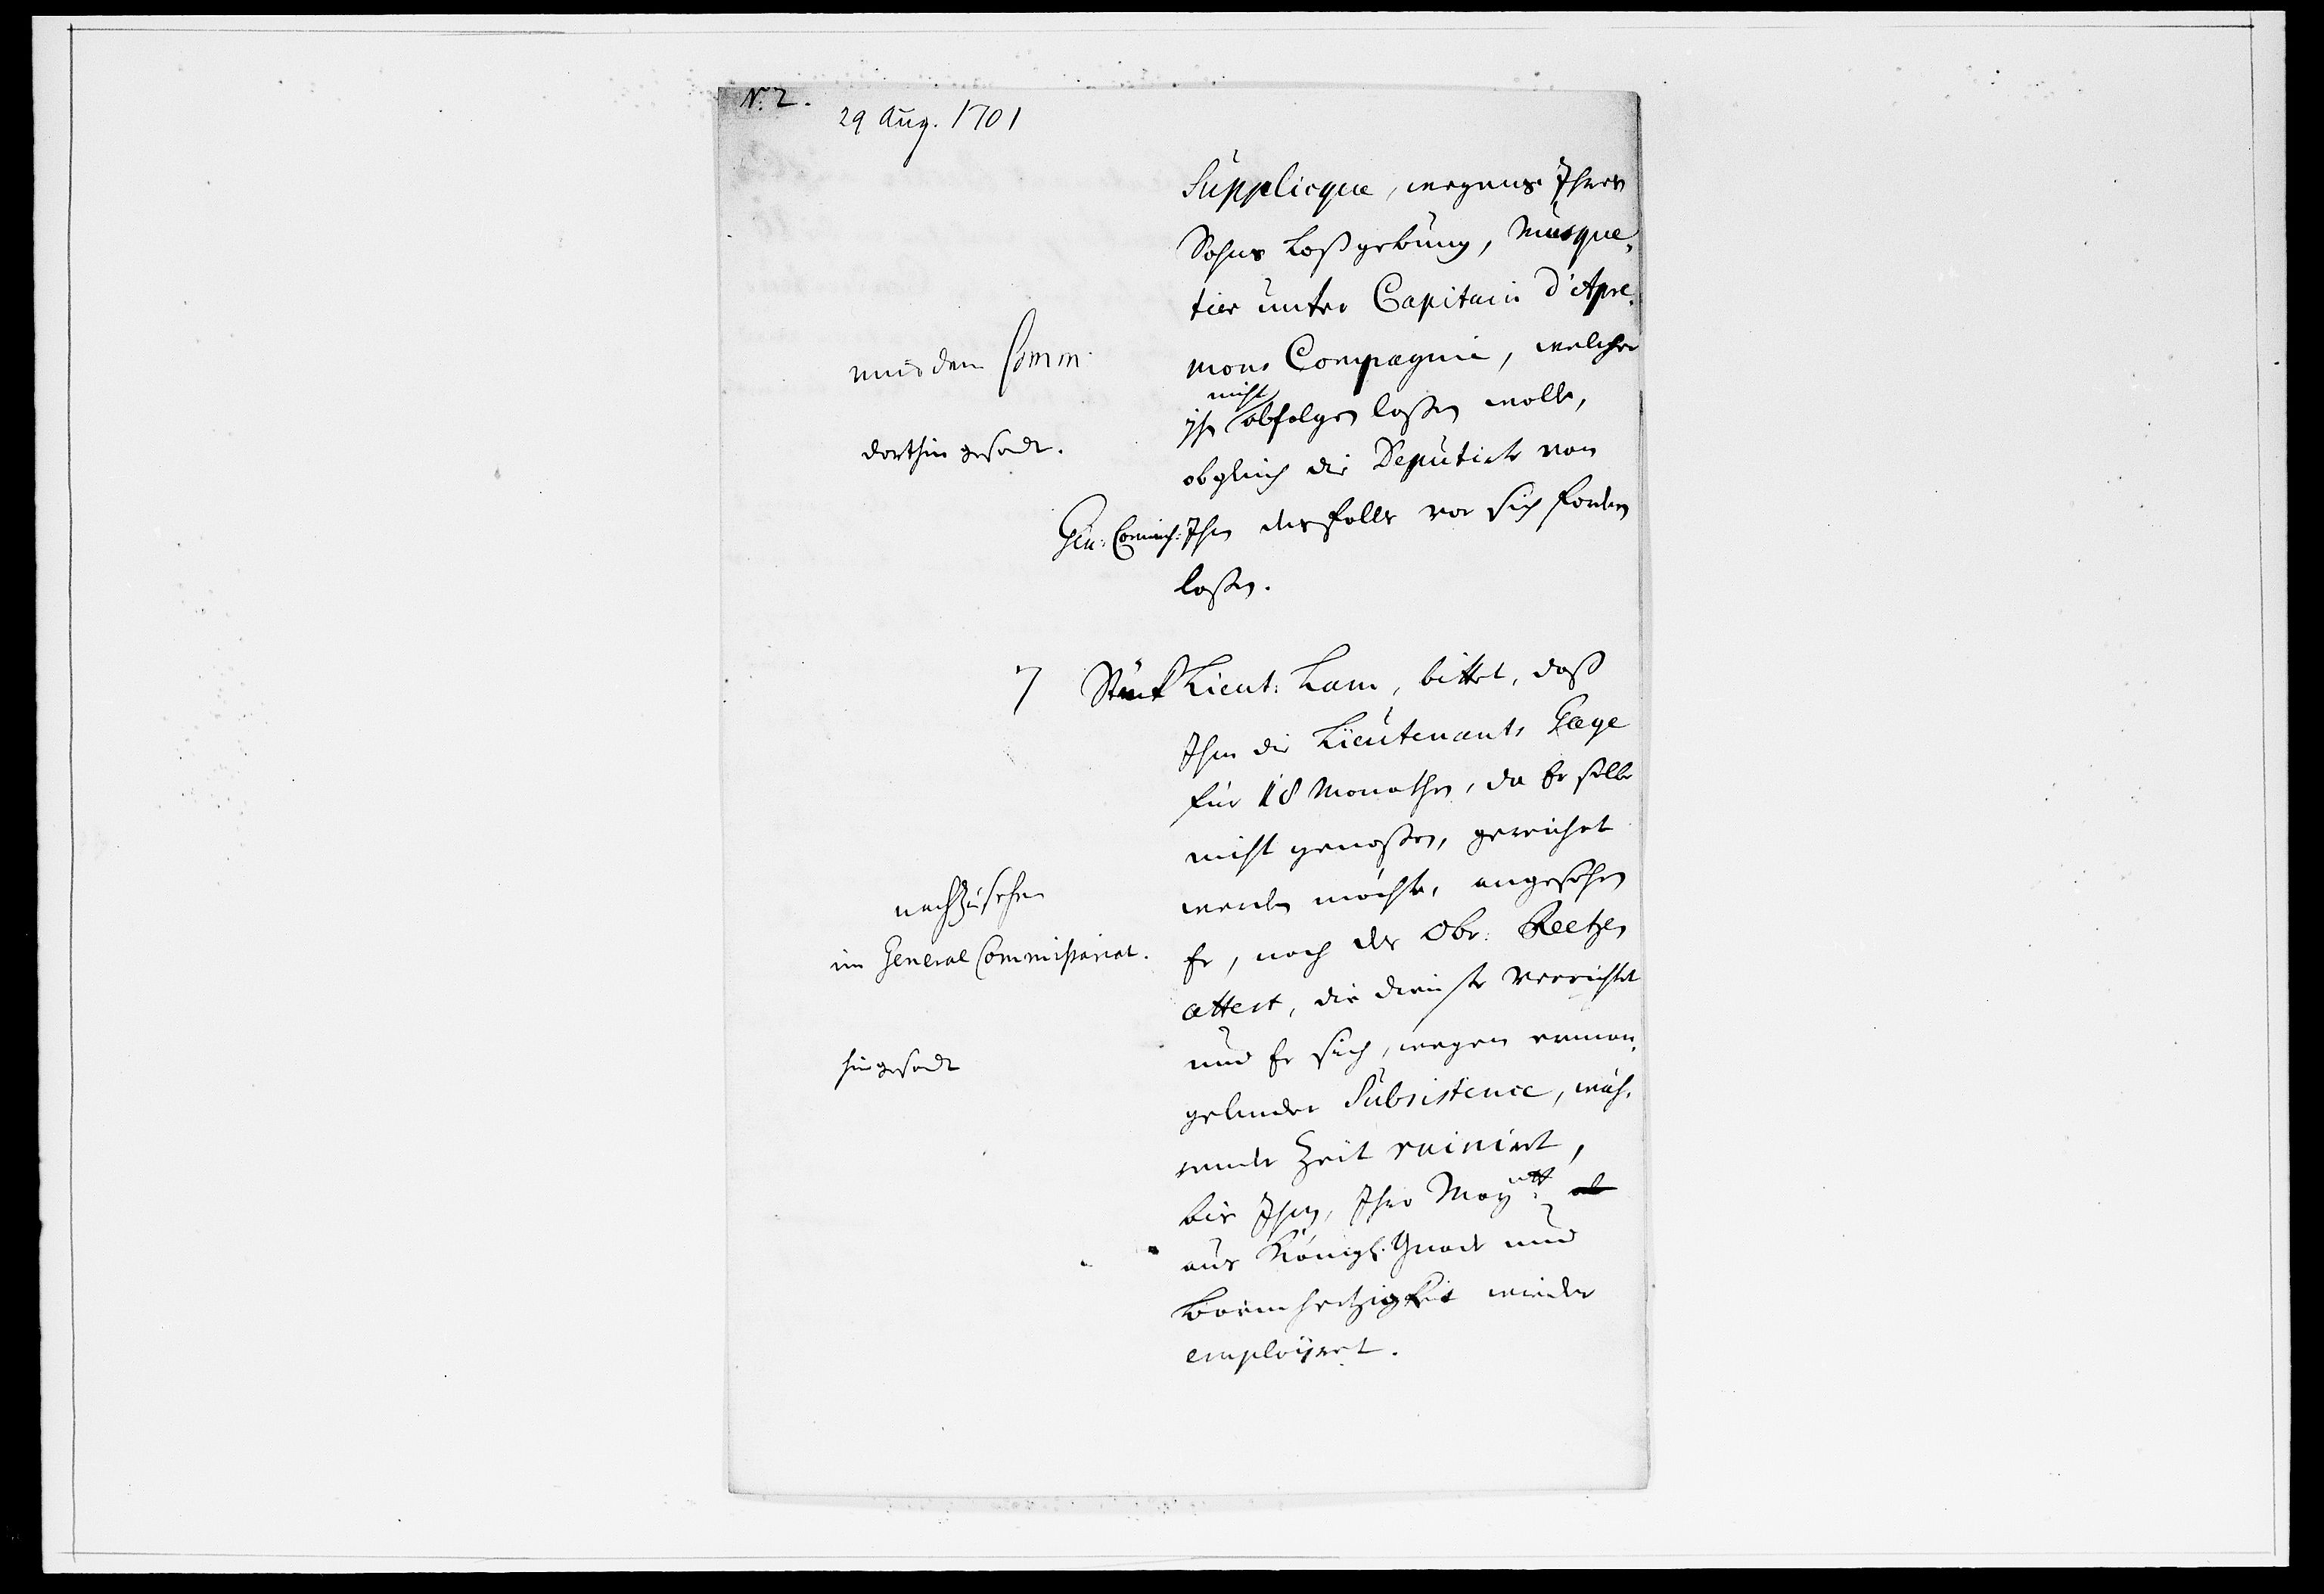 N. 2.
29 Aug. 1701
Supplicque, wegens Ihres
Sohns Loßgebung, Musque,
tier unter Capitain d'Apre,
mons Compagnie, welcher
nicht
ihn abfolgen laßen wolle,
obgleich die Deputirte vom
Gen: Commiss: Ihn desfalls vor sich fordern
laßen.
aus dem Comm.
dorthin gesandt.
7 Stück Lieut: Lam, bittet, daß
Ihm die Lieutenants Gage
für 18 Monathen, da Er selbe
nicht genoßen, gereichet
werden möchte, angesehen
Er, nach des Obr: Reetzen
attest, die dienste verrichtet
und Er sich, wegen erman,
gelender Subsistence, wäh,
render Zeit ruiniret,
bis Ihn, Ihro Maytt
aus Königl. Gnade und
Barmhertzigkeit wieder
employret.
nachzusehen
im General Commissariat.
hingesandt